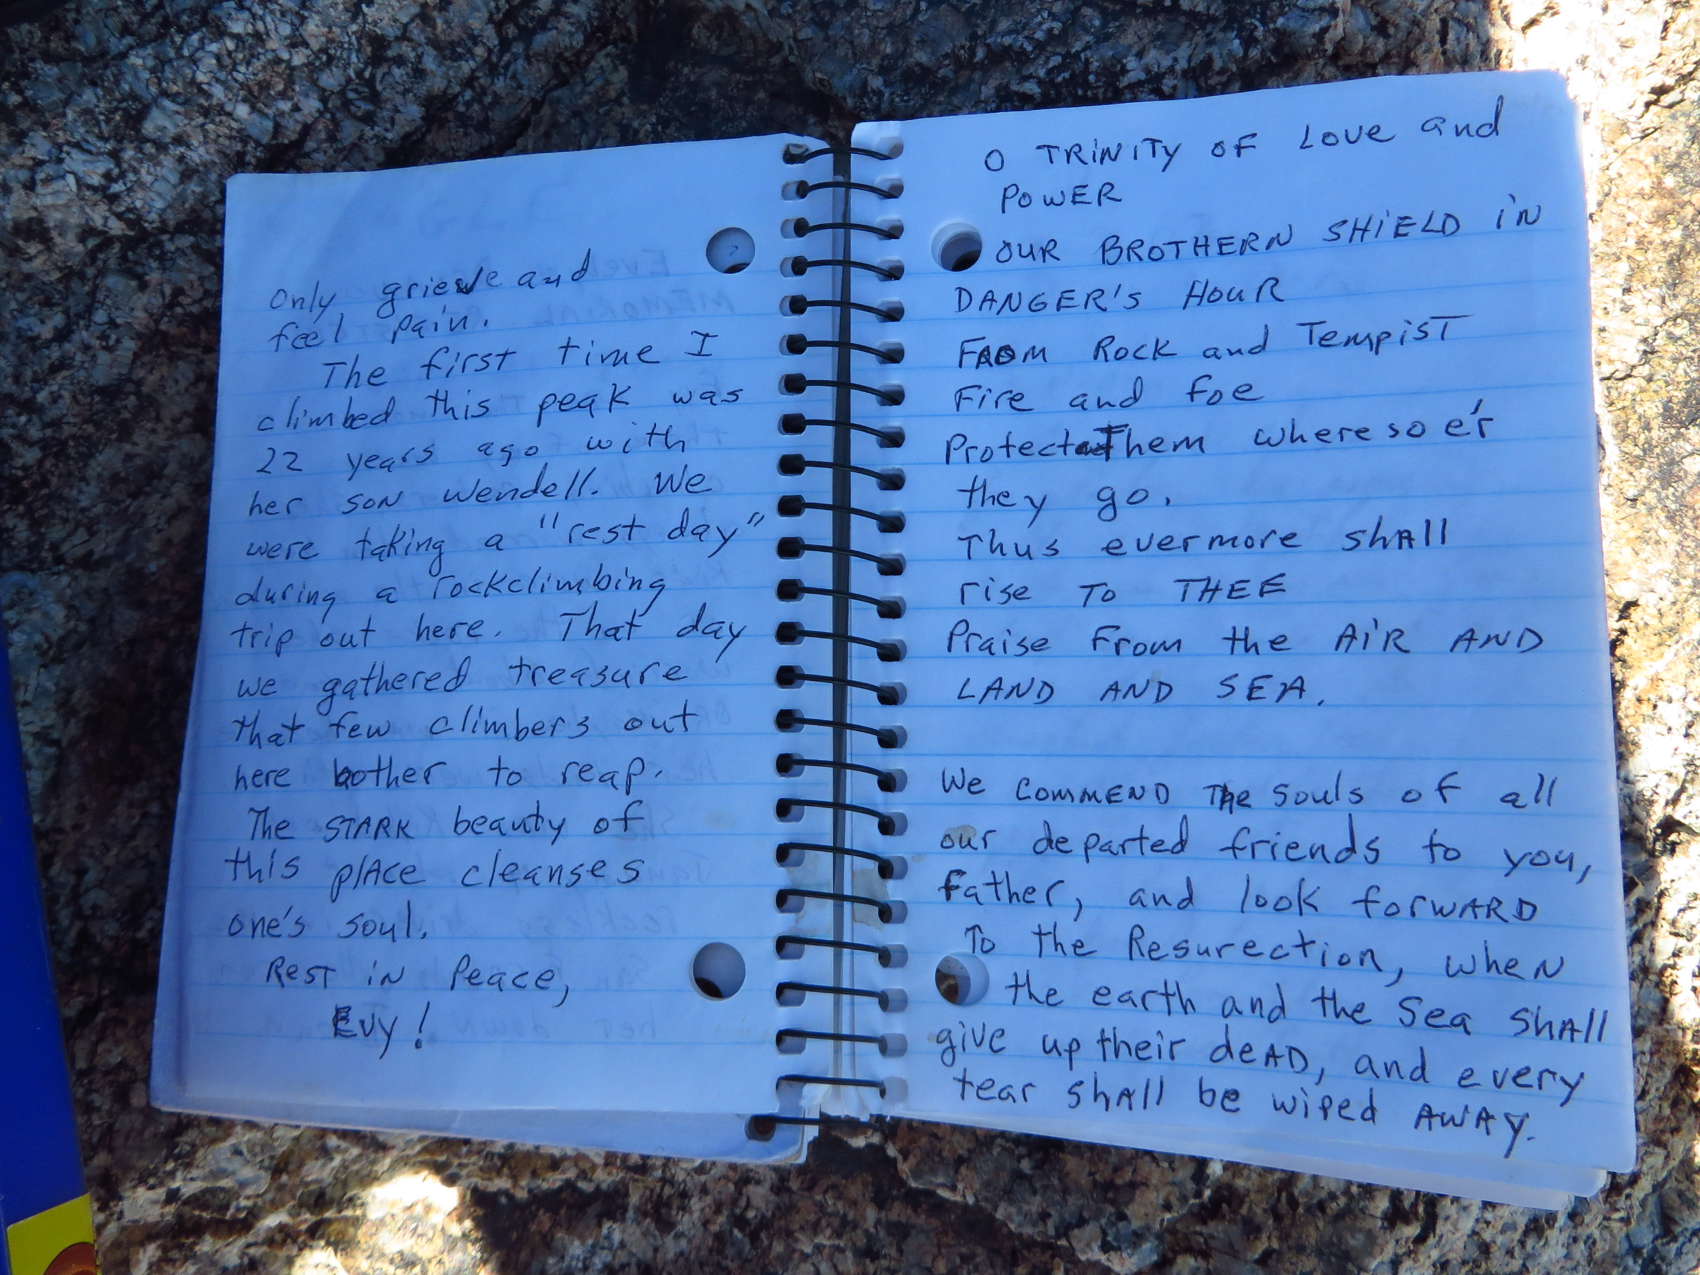 Only grieve and
feel pain.
The first time I
climbed this peak was
22 years ago with
her son Wendell. We
were taking a "rest day"
during a rockclimbing
trip out here. That day
we gathered treasure
that few climbers out
here bother to reap.
The STARK beauty of
this place cleanses
one's soul.
Rest in Peace,
Evy!
O TRINITY OF LOVE and
POWER
OUR BROTHERN SHIELD IN
DANGER'S HOUR
FROM ROCK and TEMPIST
Fire and foe
Protect Them where so e'r
they go.
Thus evermore shall
rise TO THEE
Praise From the AIR AND
LAND AND SEA.
We COMMEND The souls of all
our departed friends to you,
Father, and look forWARD
To the Resurection, wHEN
the earth and the Sea shall
give up their deAD, and every
tear shall be wiped AWAY.